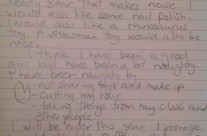 Bear that makes noise. I
would also like some nail polish.
I would also like a rhinosaurus
toy. A snowman toy would also be
nice.
I think I have been a good
girl but have been a bit naughty.
I have been naughty by
-not sharing make up
-cutting my hair
-taking things from my class and
other people
I will be nicer this year I promise